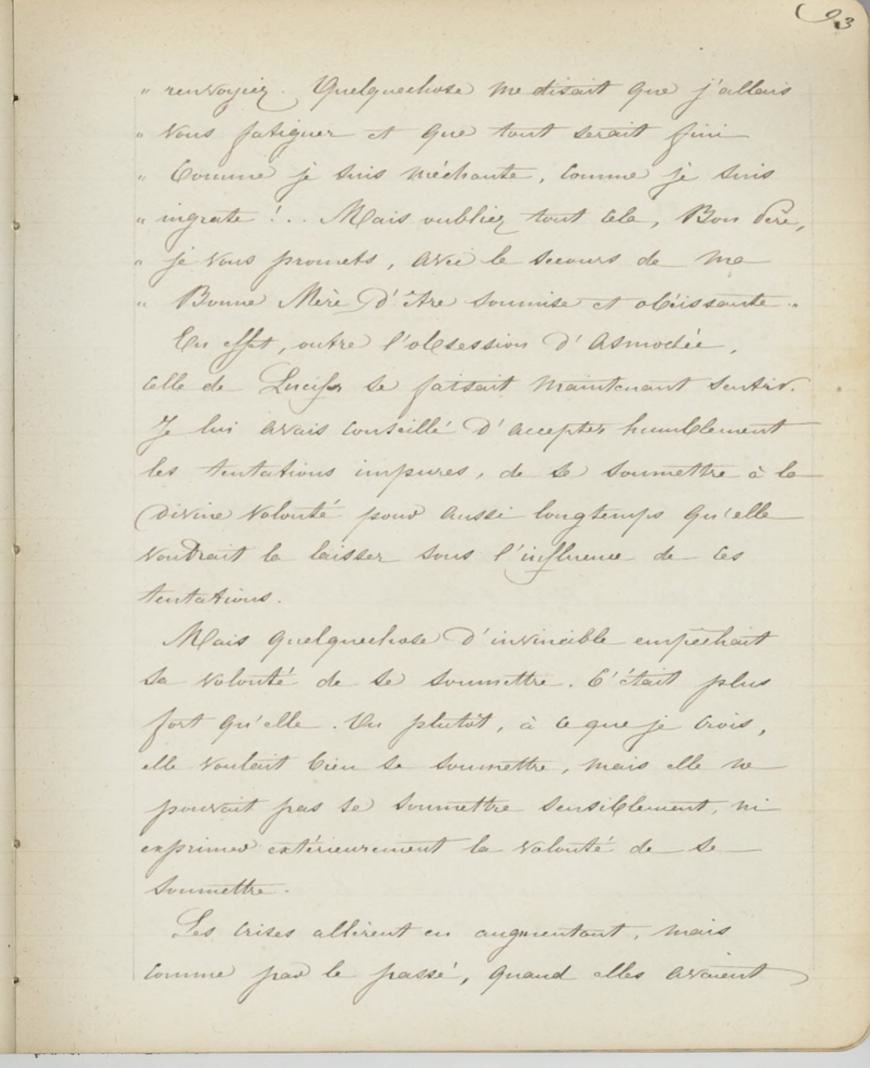 93
" renvoyiez. Quelquechose me disait que j'allais
" vous fatiguer et que tout serait fini
" Comme je suis méchante, comme je suis
" ingrate !.. Mais oubliez tout cela, Bon Père,
" je vous promets, avec le secours de ma
" Bonne Mère d'être soumise et obéissante "
En effet, outre l'obsession d'Asmodée,
celle de Lucifer se faisait maintenant sentir.
Je lui avais conseillé d'accepter humblement
les tentations impures, de se soumettre à la
divine volonté pour aussi longtemps qu'elle
voudrait la laisser sous l'influence de ces
tentations.
Mais quelquechose d'invincible empêchait
sa volonté de se soumettre. C'était plus
fort qu'elle. Ou plutôt, à ce que je crois,
elle voulait bien se soumettre, mais elle ne
pouvait pas se soumettre sensiblement, ni
exprimer extérieurement la volonté de se
soumettre.
Les crises allèrent en augmentant, mais
comme par le passé, quand elles avaient